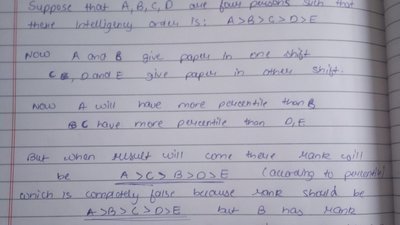 Suppose that A, B, C, D are four persons such that
there intelligency order is: A>B>C>D>E
Now A and B give paper in one shift
C, D and E give paper in other shift.
Now A will have more percentile than B,
C have more percentile than D, E.
But when result will come there rank will
be A>C>B>D>E (according to percentile)
which is completely false because rank should be
A>B>C>D>E but B has rank